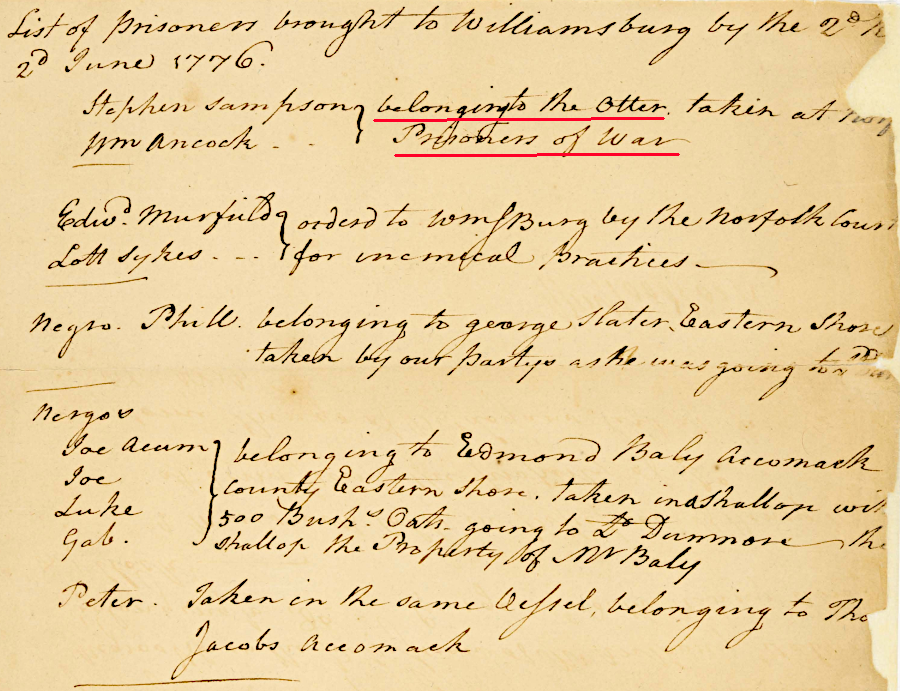 List of prisoners brought to Williamsburg by the 2d
2d June 1776.
Stephen Sampson } belonging to the Otter. taken at
Wm Ancock - - Prisoners of War
Edwd. Murfield } orderd to WmsBurg by the Norfolk Court
Lott Sykes. - - - for inemical Practices
Negro. Phill. belonging to george Slater Eastern Shore
taken by our partys as he was going to
Nergos
Joe Acum } belonging to Edmond Baly Accomack
Joe county Eastern Shore. taken in a shallop with
Luke 500 Bushs Oats going to Ld Dunmore the
Gab. shallop the Property of Mr Baly
Peter. Taken in the same Vessel, belonging to Tho
Jacobs Accomack